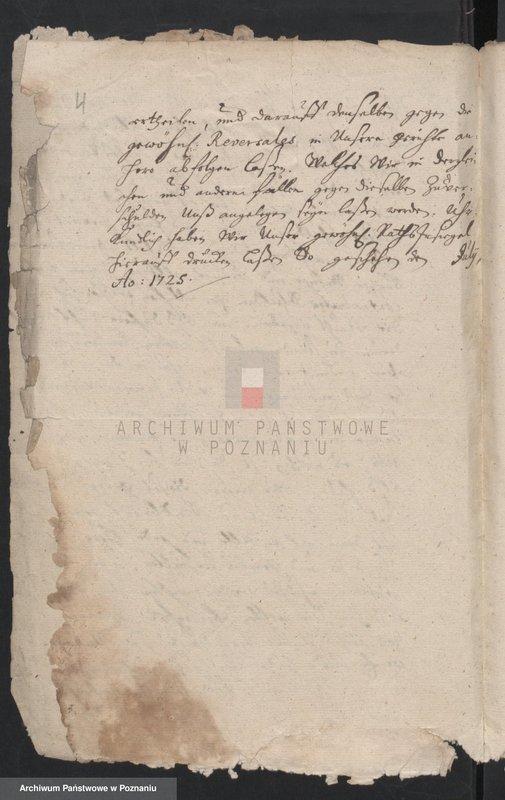 4
ertheilen, und darauff denselben gegen die
gewöhnl: Reversales in Unsere Gerichte an-
hero abfolgen laßen. Welches Wir in derglei-
chen und andern fällen gegen dieselben Zu ver-
schulden Unß angelegen seyn laßen werden. Uhr-
kundlich haben Wir Unser gewöhnl. Raths Insiegel
hierauff drucken laßen So geschehen den July,
Ao: 1725.
ARCHIWUM PAŃSTWOWE
W POZNANIU
Archiwum Państwowe w Poznaniu